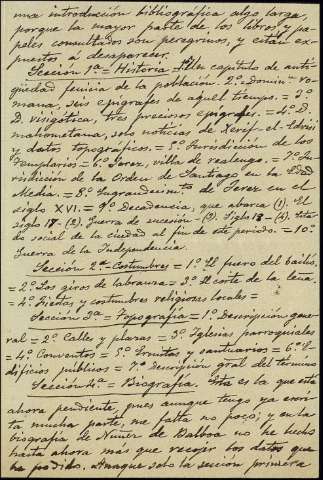 una introducción bibliográfica algo larga,
porque la mayor parte de los libros y pa-
peles consultados son peregrinos, y están ex-
puestos a desaparecer.
Sección 1ª = Historia = 1º Un capítulo de anti-
güedad fenicia de la población. 2º Domin.n ro-
mana, seis epígrafes de aquel tiempo. = 3º
D. visigótica, tres preciosos epígrafes. = 4º D.
mahometana, solo noticias de Xerif-el-Edrisi
y datos topográficos. = 5º Jurisdicción de los
Templarios = 6º Jerez, villa de realengo. = 7º Ju-
risdicción de la Orden de Santiago en la Edad
Media. = 8º Engrandecim.to de Jerez en el
siglo XVI. = 9º Decadencia, que abarca (1). El
siglo 17 - (2). Guerra de sucesión - (3). Siglo 18 - (4). Esta-
do social de la ciudad al fin de este período. = 10º
Guerra de la Independencia.
Sección 2ª - Costumbres = 1º El fuero del bailío,
= 2º Los giros de labranza = 3º El corte de la leña.
= 4º Fiestas y costumbres religiosas locales =
Sección 3ª = Topografía = 1º Descripción gene-
ral = 2º Calles y plazas = 3º Iglesias parroquiales
= 4º Conventos = 5º Ermitas y santuarios = 6º E-
dificios públicos = 7º Descripción gral. del término
Sección 4ª = Biografía. Esta es la que está
ahora pendiente, pues aunque tengo ya escri-
ta mucha parte, me falta no poco; y en la
biografía de Núñez de Balboa no he hecho
hasta ahora más que recojer los datos que
he podido. Aunque solo la sección primera